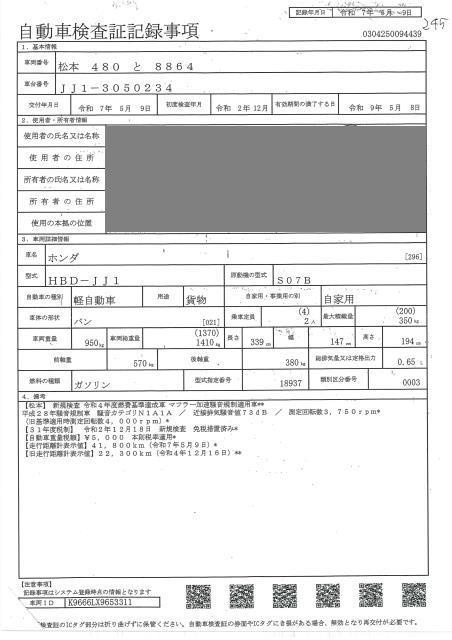 記録年月日 令和 7年 5月 9日
245
自動車検査証記録事項
0304250094439
1．基本情報
車両番号 松本 480 と 8864
車台番号 JJ1-3050234
交付年月日 令和 7年 5月 9日 初度検査年月 令和 2年12月 有効期間の満了する日 令和 9年 5月 8日
2．使用者・所有者情報
使用者の氏名又は名称
使用者の住所
所有者の氏名又は名称
所有者の住所
使用の本拠の位置
3．車両詳細情報
車名 ホンダ [296]
型式 HBD-JJ1 原動機の型式 S07B
自動車の種別 軽自動車 用途 貨物 自家用・事業用の別 自家用
車体の形状 バン [021] 乗車定員 (4) 2人 最大積載量 (200) 350kg
車両重量 950kg 車両総重量 (1370) 1410kg 長さ 339cm 幅 147cm 高さ 194cm
前軸重 570kg 後軸重 380kg 総排気量又は定格出力 0.65L
燃料の種類 ガソリン 型式指定番号 18937 類別区分番号 0003
4．備考
【松本】 新規検査 令和4年度燃費基準達成車 マフラー加速騒音規制適用車**
平成28年騒音規制車 騒音カテゴリN1A1A ／ 近接排気騒音値73dB ／ 測定回転数3，750rpm*
（旧基準適用時測定回転数4，000rpm）*
【31年度税制】 令和2年12月18日 新規検査 免税措置済み*
【自動車重量税額】¥5，000 本則税率適用*
【走行距離計表示値】41，800km（令和7年5月9日）*
【旧走行距離計表示値】22，300km（令和4年12月16日）**
【注意事項】
記録事項はシステム登録時点の情報となります
車両ID K9666LX9653311
検査証のICタグ部分は折り曲げずに保管ください。自動車検査証の券面やICタグにき損がある場合、無効となり再交付が必要です。